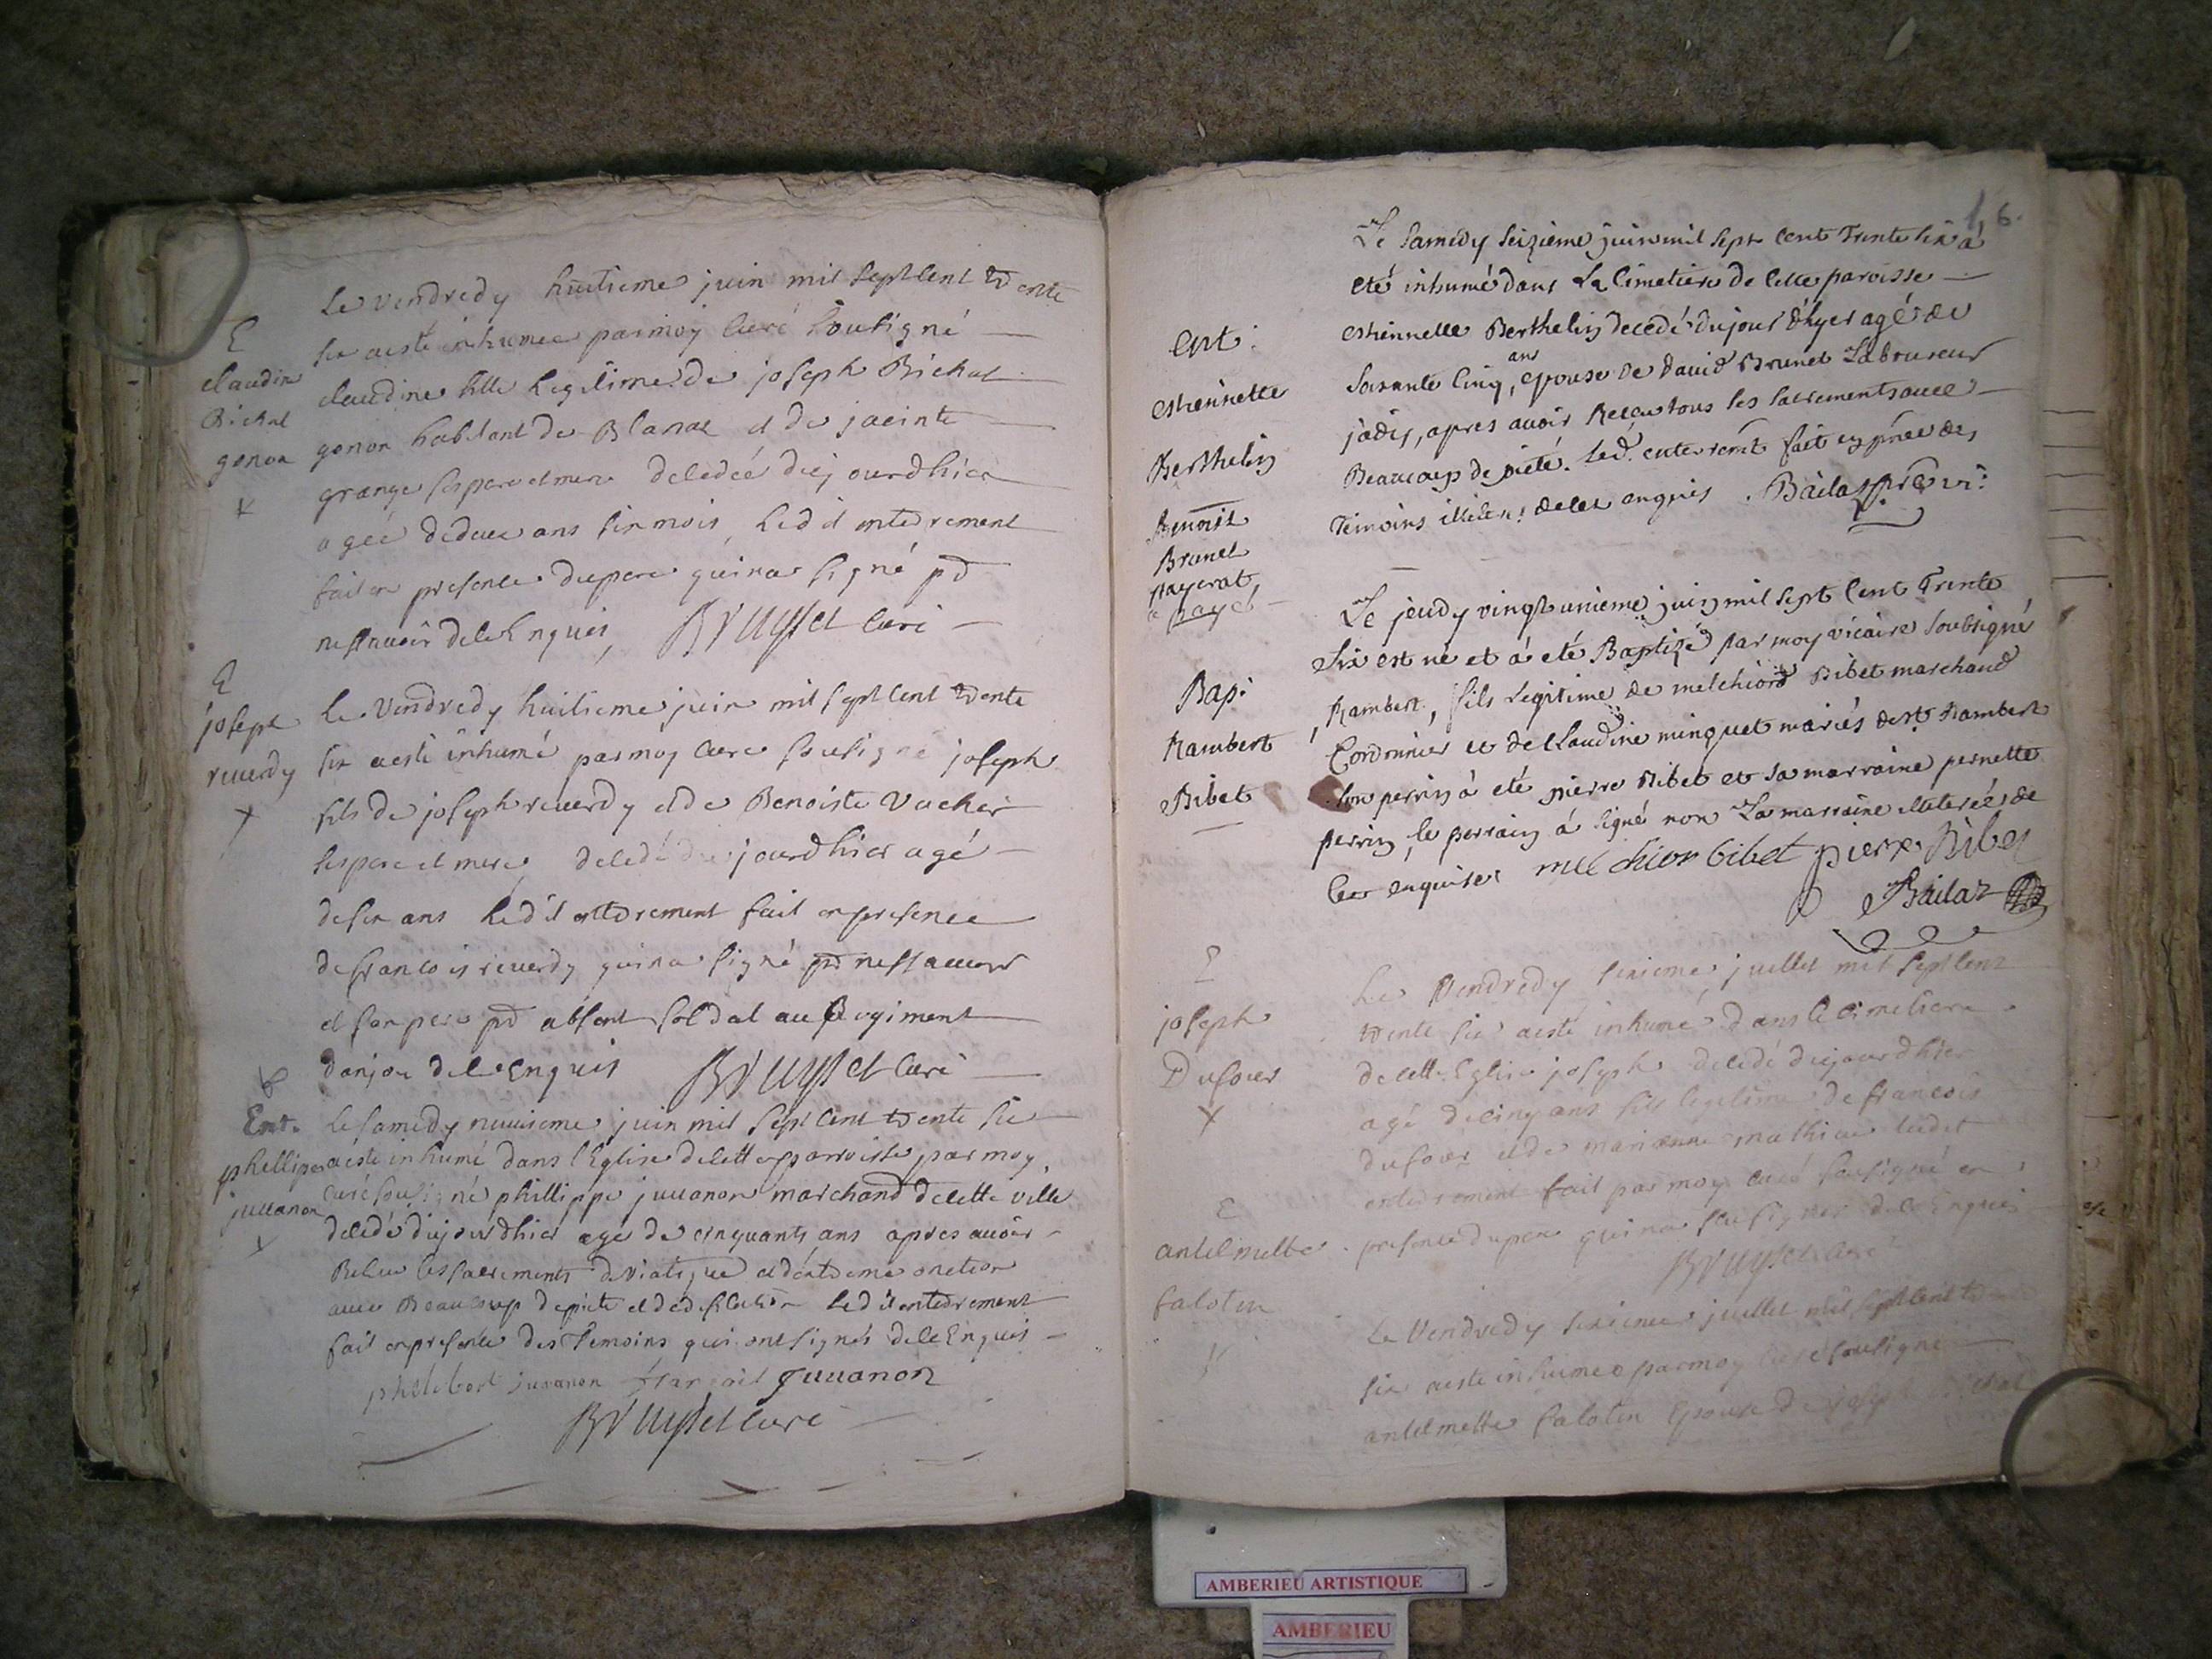 E
claudine
Bichat
genon
Le vendredy huitieme juin mil sept cent trente
six a esté inhumée par moy curé soussigné
claudine fille legitime de joseph Bichat
genon habitant de Blanaz et de jacinte
grange ses pere et mere decedée du jourdhier
agée de deux ans six mois, ledit enterrement
fait en presence du pere qui na signé pd
ne scavoir de ce Enquis, Bruyset curé
E
joseph
reverdy
Le vendredy huitieme juin mil sept cent trente
six a esté inhumé par moy curé soussigné joseph
fils de joseph reverdy et de Benoiste Vacher
ses pere et mere, decedé du jourdhier agé
de six ans ledit enterrement fait en presence
de francois reverdy qui na signé pd ne scavoir
et son pere pd absent soldat au Regiment
danjou de ce Enquis Bruyset curé
Ent.
phillipe
juvanon
Le samedy neuvieme juin mil sept cent trente six
a esté inhumé dans l'Eglise de cette parroisse par moy
curé soussigné phillippe juvanon marchand de cette ville
decedé du jourdhier agé de cinquante ans apres avoir
Receu les sacrements de viatique et dextreme onction
avec Beaucoup de pieté et de ledit enterrement
fait en presence des temoins qui ont signés de ce Enquis
philibert juvanon juvanon
Bruyset curé
16.
ent:
esthiennette
Berthelin
Benoist
Brunet
Le samedy seizieme juin mil sept cent Trente six a
eté inhumé dans le Cimetiere de cette paroisse
esthiennette Berthelin decedé du jour d'hyer agé de
soixante cinq ans, epouse de david Brunet Laboureur
jadis, apres avoir Receu tous les sacrements avec
Beaucoup de pieté. led. enterremt fait en pnce des
Témoins illiter: de ce enquis. Bailat ptre vi:
Bap:
Rambert
Bibet
Le jeudy vingt unieme juin mil sept Cent Trente
six est né et á eté Baptizé par moy vicaire soubsigné
Rambert, fils Legitime de melchiord Bibet marchand
Cordonnier et de Claudine minguet mariés de st Rambert
son perrin á eté pierre Bibet et sa marraine pernette
perrin, le perrain á signé non La marraine illiterée de
ce enquise melchior bibet pierre Bibet
Bailat
E
joseph
Dufour
Le Vendredy sixieme juillet mil sept cent
trente six a esté inhumé dans le cimetiere
de cette Eglise joseph decedé du jourdhier
agé de cinq ans fils legitime de francois
dufour et de marianne mathieu ledit
enterrement fait par moy curé soussigné en
presence du pere qui na sceu signer de ce Enquis
Bruyset curé
E
antelmette
falotin
Le Vendredy sixieme juillet mil sept cent
six a esté inhumée par moy curé soussigné
antelmette falotin Epouse de
AMBERIEU ARTISTIQUE
AMBERIEU